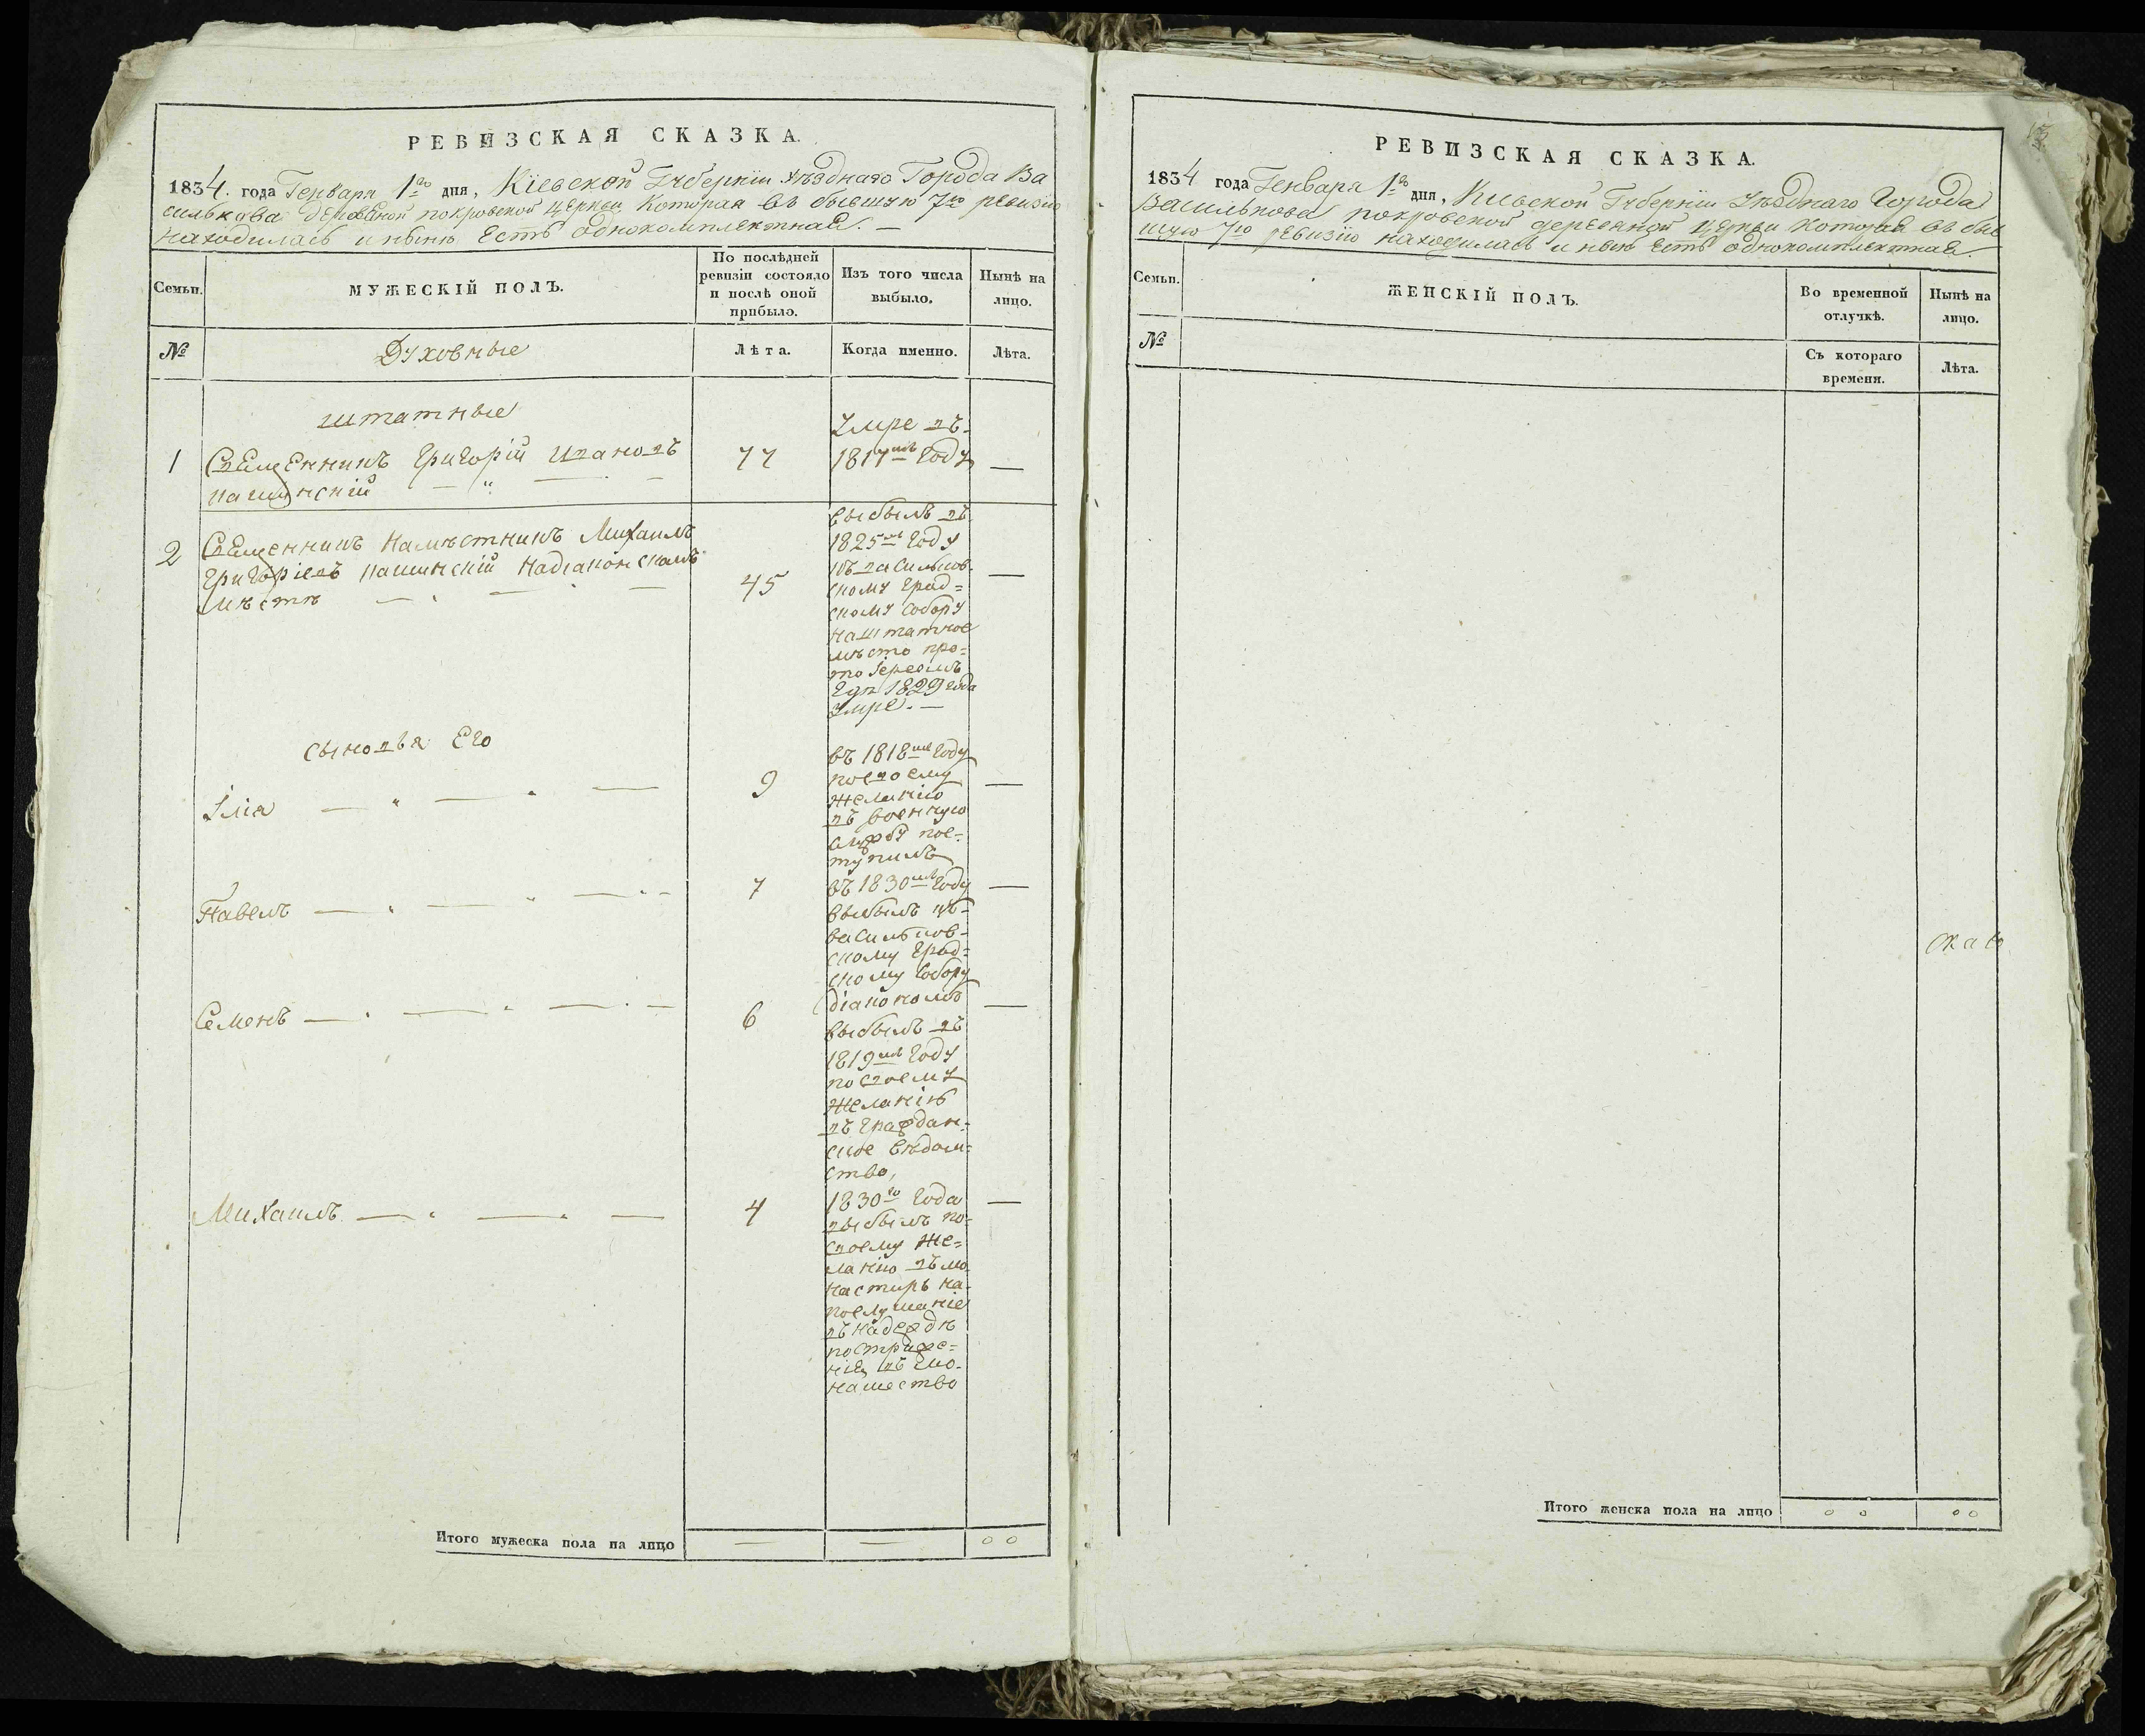 РЕВИЗСКАЯ СКАЗКА.
1834. года Генваря 1го дня, Кіевской Губерніи уѣзднаго Города Ва
силькова деревяной покровской церкви которая въ бывшую 7ю ревизію
находилась и нынѣ есть однокомплектная. —
Семьи.
МУЖЕСКІЙ ПОЛЪ.
По послѣдней
ревизіи состояло
и послѣ оной
прибыло.
Изъ того числа
выбыло.
Нынѣ на
лицо.
№
Духовные
Лѣта.
Когда именно.
Лѣта.
штатные
1
Священникъ Григорій Ивановъ
77
Умре въ
1817мъ году
—
2
Священникъ Намѣстникъ Михаилъ
Григорьевъ надіаконскомъ
мѣстѣ
45
выбылъ въ
1825мъ году
къ васильков-
скому град=
скому собору
на штатное
мѣсто про=
тоіереомъ
гдѣ 1829 года
умре. —
—
Сыновья Его
Ілія
9
въ 1818мъ году
по своему
желанію
въ военную
службу пос=
тупилъ
—
Павелъ
7
въ 1830мъ году
выбылъ къ
васильков-
скому град=
скому собору
діакономъ
—
Семенъ
6
выбылъ въ
1819мъ году
по своему
желанію
въ граждан-
ское вѣдом=
ство,
—
Михаилъ
4
1830го года
выбылъ по=
своему же=
ланію въ мо
настирь на
послушаніе
въ надеждѣ
постриже=
нія въ мо-
нашество
—
Итого мужеска пола на лицо
— — 0 0
РЕВИЗСКАЯ СКАЗКА.
1834 года Генваря 1го дня, Кіевской Губерніи Уѣзднаго Города
Василькова покровской деревяной церкви которая въ быв
шую 7ю ревизію находилась и нынѣ есть однокомплектная.
Семьи.
ЖЕНСКІЙ ПОЛЪ.
Во временной
отлучкѣ.
Нынѣ на
лицо.
№
Съ котораго
времени.
Лѣта.
Итого женска пола на лицо
0 0
0 0